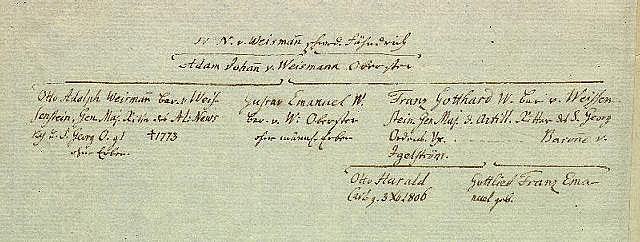 N. v. Weismañ schwed. Fähndrich
Adam Johañ v. Weismann Oberster
Otto Adolph Weismañ bar. v. Weis-
senstein, Gen. Maj. Ritter des Al: News
und d. S. Georg O. †1773
ohne Erben
Gustav Emanuel W.
bar. v. W: Oberster
ohne männl. Erben
Franz Gotthard W. bar v. Weissen-
stein Gen Maj. d. Artill. Ritter des S. Georg
Ordens Ux. Baronne v.
Igelström.
Otto Harald
g. 1806
Gottlieb Franz Ema-
nuel geb.